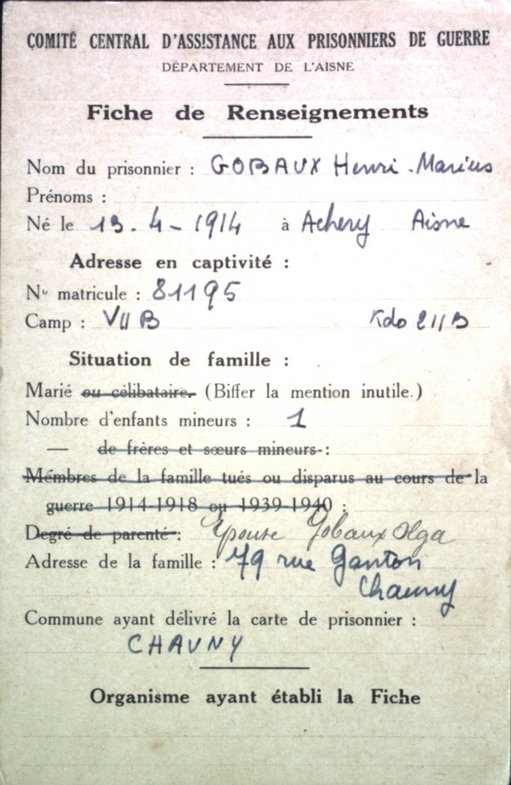 COMITÉ CENTRAL D'ASSISTANCE AUX PRISONNIERS DE GUERRE
DÉPARTEMENT DE L'AISNE
Fiche de Renseignements
Nom du prisonnier : GOBAUX Henri-Marius
Prénoms :
Né le 13-4-1914 à Achery Aisne
Adresse en captivité :
No matricule : 81195
Camp : VII B Kdo 211B
Situation de famille :
Marié ou célibataire. (Biffer la mention inutile.)
Nombre d'enfants mineurs : 1
— de frères et sœurs mineurs :
Membres de la famille tués ou disparus au cours de la
guerre 1914-1918 ou 1939-1940 :
Degré de parenté : Epouse Gobaux Olga
Adresse de la famille : 79 rue Ganton
Chauny
Commune ayant délivré la carte de prisonnier :
CHAUNY
Organisme ayant établi la Fiche